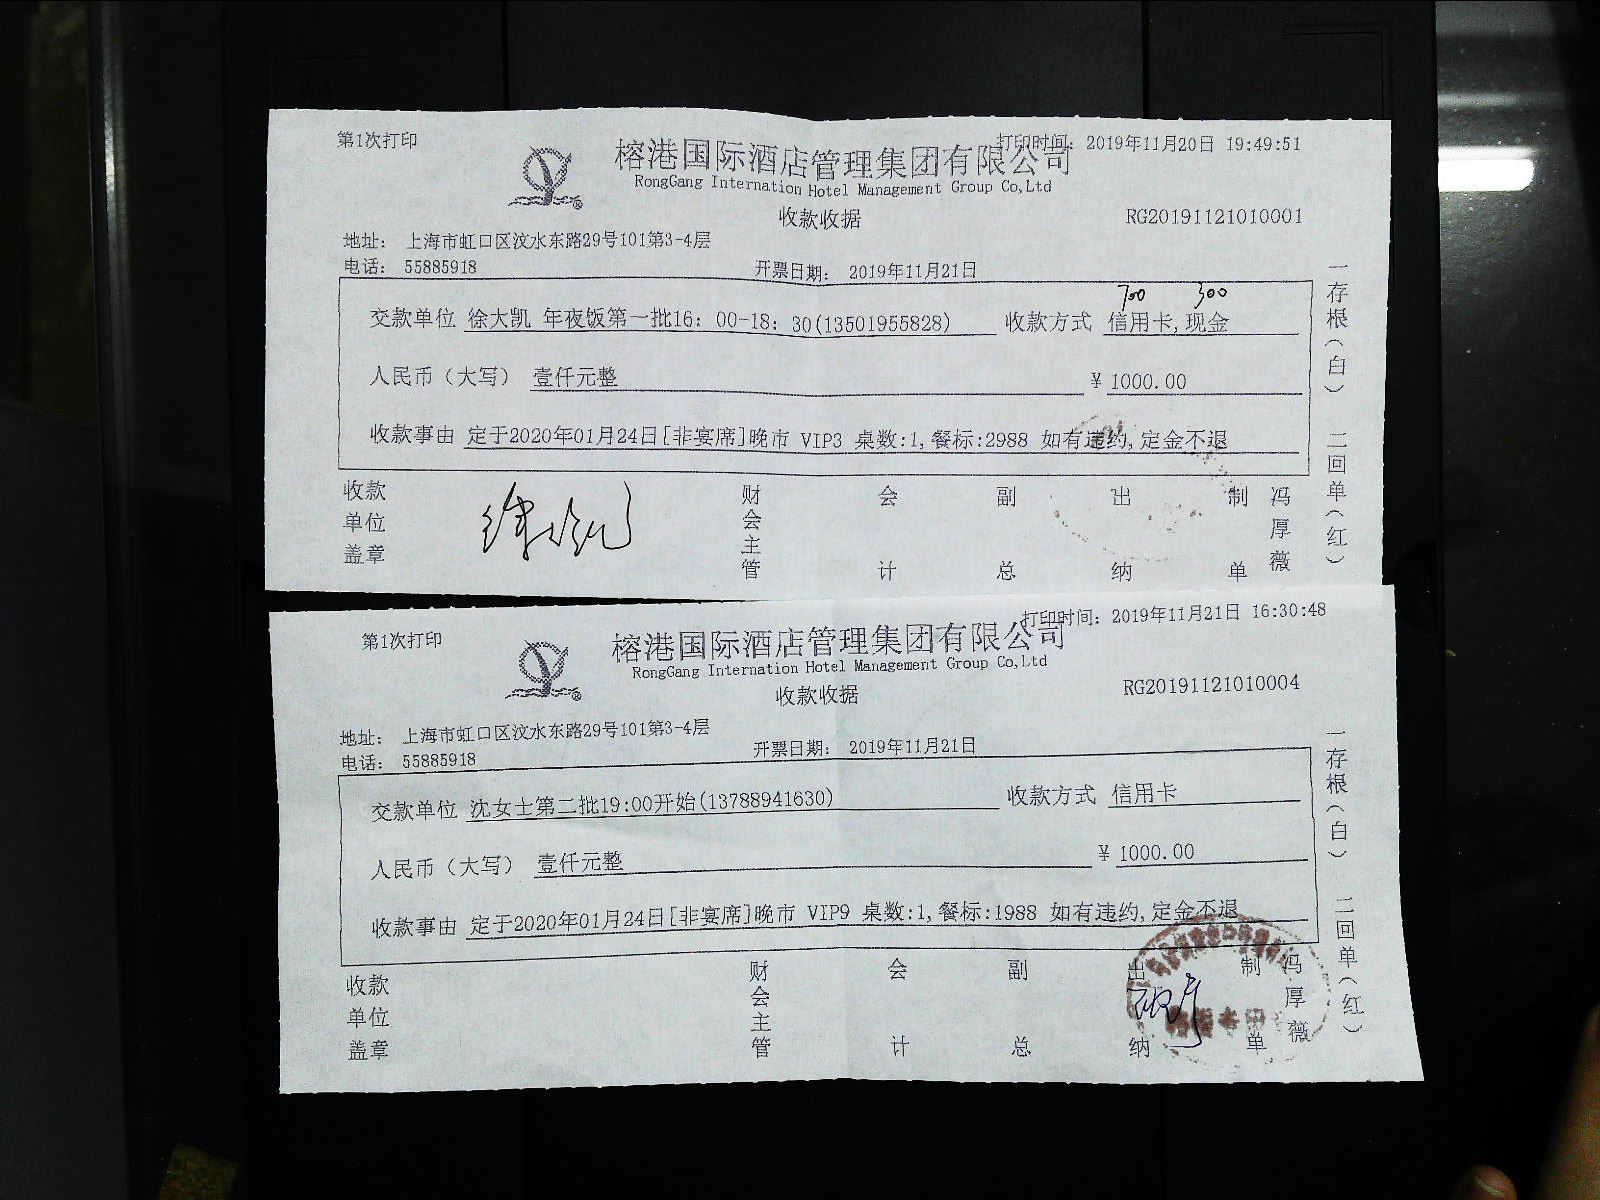 第1次打印
打印时间: 2019年11月20日 19:49:51
榕港国际酒店管理集团有限公司
RongGang Internation Hotel Management Group Co,Ltd
收款收据
RG20191121010001
地址: 上海市虹口区汶水东路29号101第3-4层
电话: 55885918
开票日期: 2019年11月21日
700 300
交款单位 徐大凯 年夜饭第一批16: 00-18: 30(13501955828) 收款方式 信用卡,现金
人民币(大写) 壹仟元整 ¥ 1000.00
收款事由 定于2020年01月24日[非宴席]晚市 VIP3 桌数:1,餐标:2988 如有违约,定金不退
收款单位盖章 财会主管 会计 副总 出纳 制单 冯厚薇
一存根(白) 二回单(红)
第1次打印
打印时间: 2019年11月21日 16:30:48
榕港国际酒店管理集团有限公司
RongGang Internation Hotel Management Group Co,Ltd
收款收据
RG20191121010004
地址: 上海市虹口区汶水东路29号101第3-4层
电话: 55885918
开票日期: 2019年11月21日
交款单位 沈女士第二批19:00开始(13788941630) 收款方式 信用卡
人民币(大写) 壹仟元整 ¥ 1000.00
收款事由 定于2020年01月24日[非宴席]晚市 VIP9 桌数:1,餐标:1988 如有违约,定金不退
收款单位盖章 财会主管 会计 副总 出纳 制单 冯厚薇
一存根(白) 二回单(红)